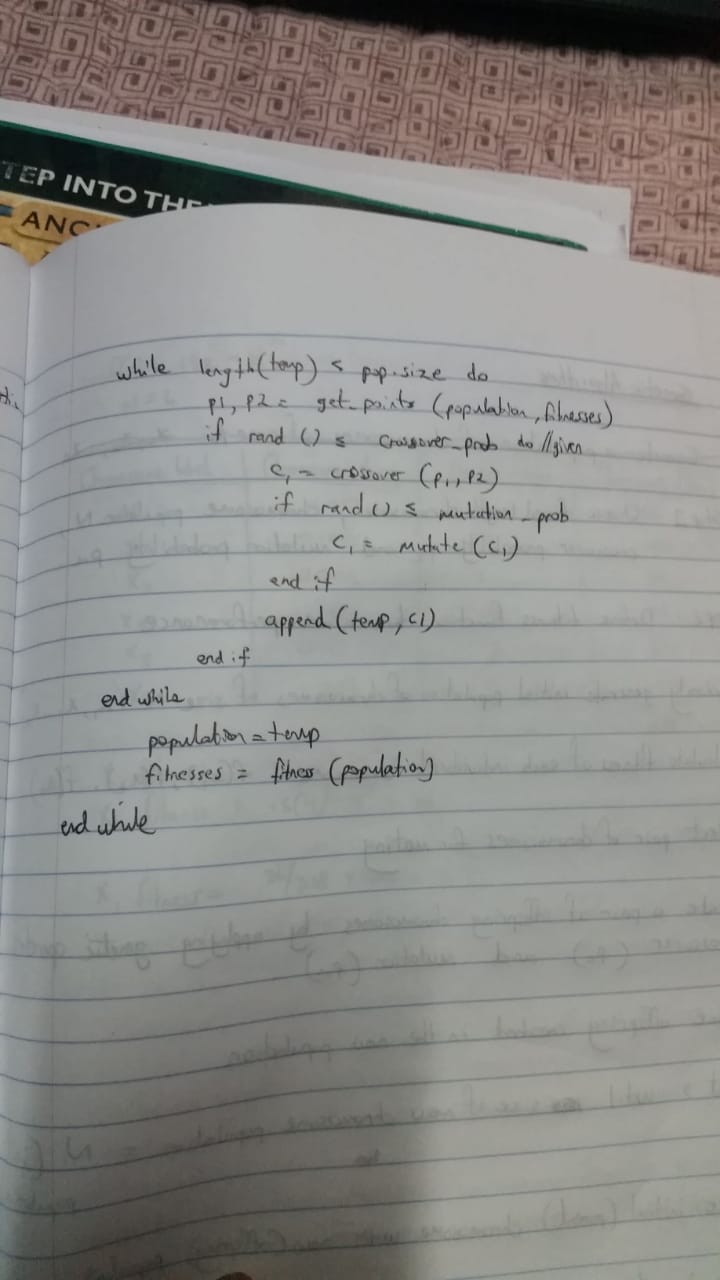 TEP INTO THE
ANC
while length(temp) ≤ pop.size do
p1, p2 = get_points (population, fitnesses)
if rand () ≤ crossover_prob do //given
C1 = crossover (P1, P2)
if rand () ≤ mutation_prob
C1 = mutate (C1)
end if
append (temp, C1)
end if
end while
population = temp
fitnesses = fitness (population)
end while